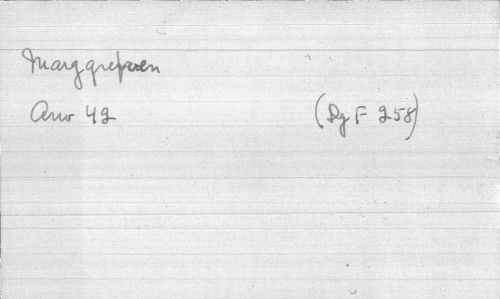 Marggrefwen
Arw 42 (Rg F 258)